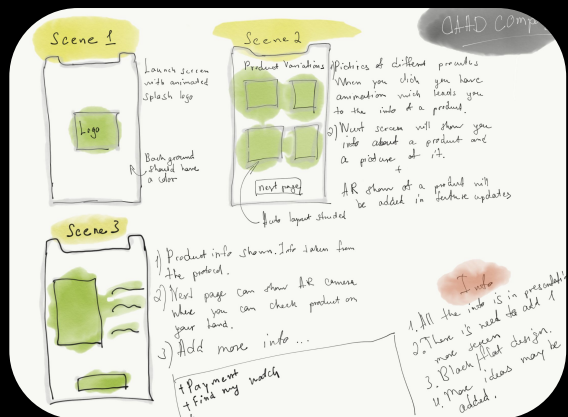 Scene 1
Launch screen
with animated
splash logo
Logo
Background
should have
a color
Scene 2
Product Variations
next page
Auto layout
1) of different
When you you have
animation leads you
to the info of a product.
2) Next screen will show you
info about a product and
a picture of it.
+
AR show of a product will
be added in updates
OAAD Comp
Scene 3
1) Product info shown. Info taken from
the protocol.
2) Next page can show AR camera
where you can check product on
your hand.
3) Add more info...
+ Payment
+ Find my watch
+
Info
1. All the info is in
2. There is need to add 1
more screen
3. Black flat design.
4. More ideas may be
added.